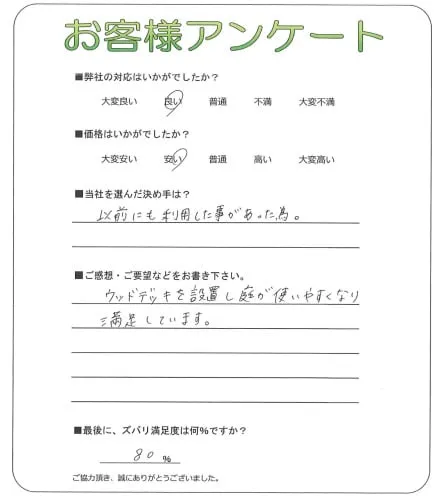 お客様アンケート
■弊社の対応はいかがでしたか？
大変良い 良い 普通 不満 大変不満
■価格はいかがでしたか？
大変安い 安い 普通 高い 大変高い
■当社を選んだ決め手は？
以前にも利用した事があった為。
■ご感想・ご要望などをお書き下さい。
ウッドデッキを設置し庭が使いやすくなり
満足しています。
■最後に、ズバリ満足度は何％ですか？
80 ％
ご協力頂き、誠にありがとうございました。